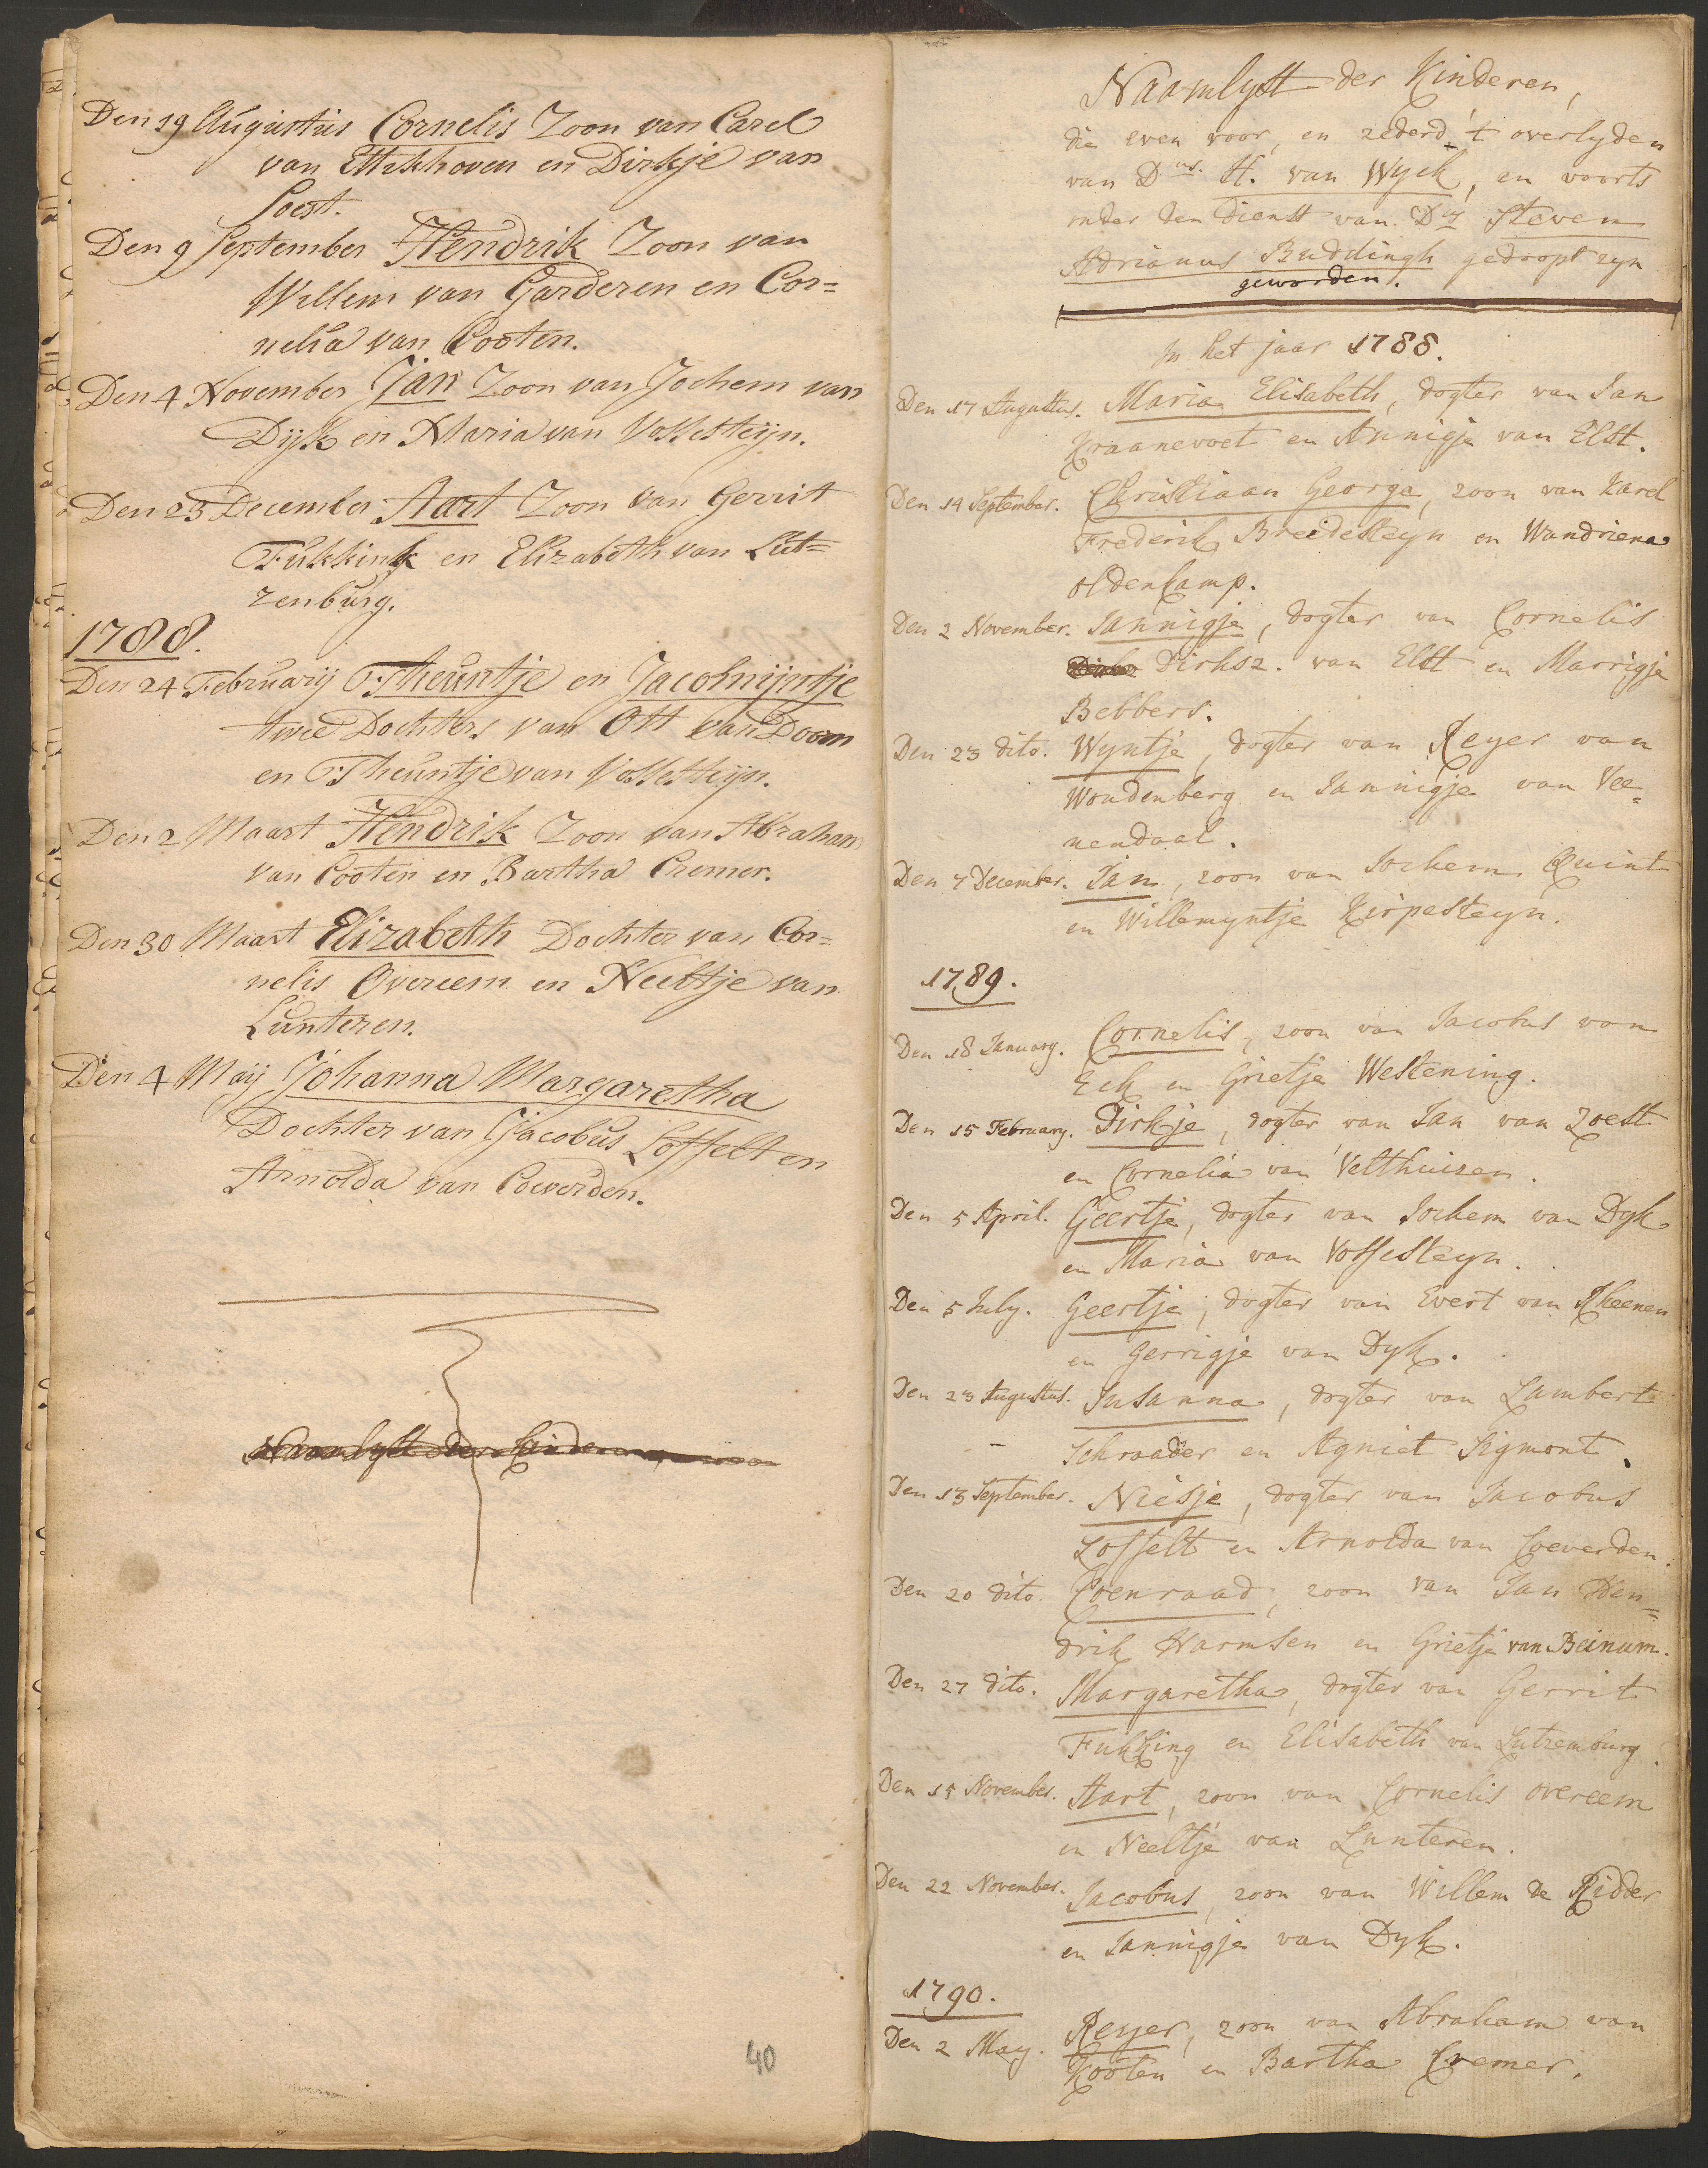 Den 19 Augustus Cornelis Zoon van Carel
van Ettikhoven en Dirkje van
Soest.
Den 9 September Hendrik Zoon van
Willem van Garderen en Cor=
nelia van Cooten.
Den 4 November Jan Zoon van Jochem van
Dijk en Maria van Vossesteijn.
Den 23 December Aart Zoon van Gerrit
Fukkink en Elizabeth van Lut=
zenburg.
1788.
Den 24 Februarij Theuntje en Jacomijntje
twee Dochters van Ott van Doorn
en Theuntje van Vossesteijn.
Den 2 Maart Hendrik Zoon van Abraham
van Cooten en Bartha Cremer.
Den 30 Maart Elizabeth Dochter van Cor=
nelis Overeem en Neeltje van
Lunteren.
Den 4 Maij Johanna Margaretha
Dochter van Jacobus Loffelt en
Arnolda van Coeverden.
Naamlyst der Kinderen
40
Naamlyst der Kinderen,
die even voor, en zederd 't overlyden
van Dns. H. van Wyck, en voorts
onder den dienst van Ds Steven
Adrianus Buddingh gedoopt zyn
geworden.
In het jaar 1788.
Den 17 Augustus. Maria Elisabeth, dogter van Jan
Kraanevoet en Annigje van Elst.
Den 14 September. Christiaan George, zoon van Karel
Frederik Breidesteyn en Wandriena
Oldencamp.
Den 2 November. Jannigje, dogter van Cornelis
Dirksz. van Elst en Marrigje
Bebbers.
Den 23 dito. Wyntje, dogter van Reyer van
Woudenberg en Jannigje van Vee=
nendaal.
Den 7 December. Jan, zoon van Jochem Quint
en Willemyntje Kispesteyn.
1789.
Den 18 January. Cornelis, zoon van Jacobus van
Eck en Grietje Westening.
Den 15 February. Dirkje, dogter van Jan van Zoest
en Cornelia van Velthuizen.
Den 5 April. Geertje, dogter van Jochem van Dyk
en Maria van Vossesteyn.
Den 5 July. Geertje, dogter van Evert van Rheenen
en Gerrigje van Dyk.
Den 23 Augustus. Susanna, dogter van Lambert
Schraader en Agniet Sigmont.
Den 13 September. Niesje, dogter van Jacobus
Loffelt en Arnolda van Coeverden.
Den 20 dito. Coenraad, zoon van Jan Hen=
drik Harmsen en Grietje van Beinum.
Den 27 dito. Margaretha, dogter van Gerrit
Fukking en Elisabeth van Lutzemburg.
Den 15 November. Aart, zoon van Cornelis overeem
en Neeltje van Lunteren.
Den 22 November. Jacobus, zoon van Willem de Ridder
en Jannigje van Dyk.
1790.
Den 2 May. Reyer, zoon van Abraham van
Kooten en Bartha Cremer.